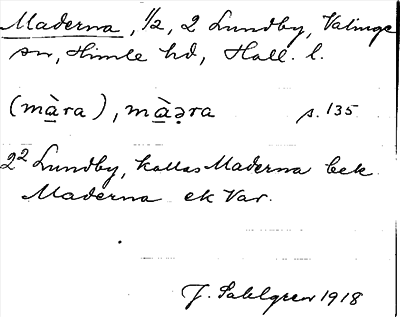 Maderna, 1/2, 2 Lundby, Valinge
sn, Himle hd, Hall. l.
(màra), màəra s. 135
2² Lundby, kallas Maderna bek.
Maderna ek Var.
J. Sahlgren 1918